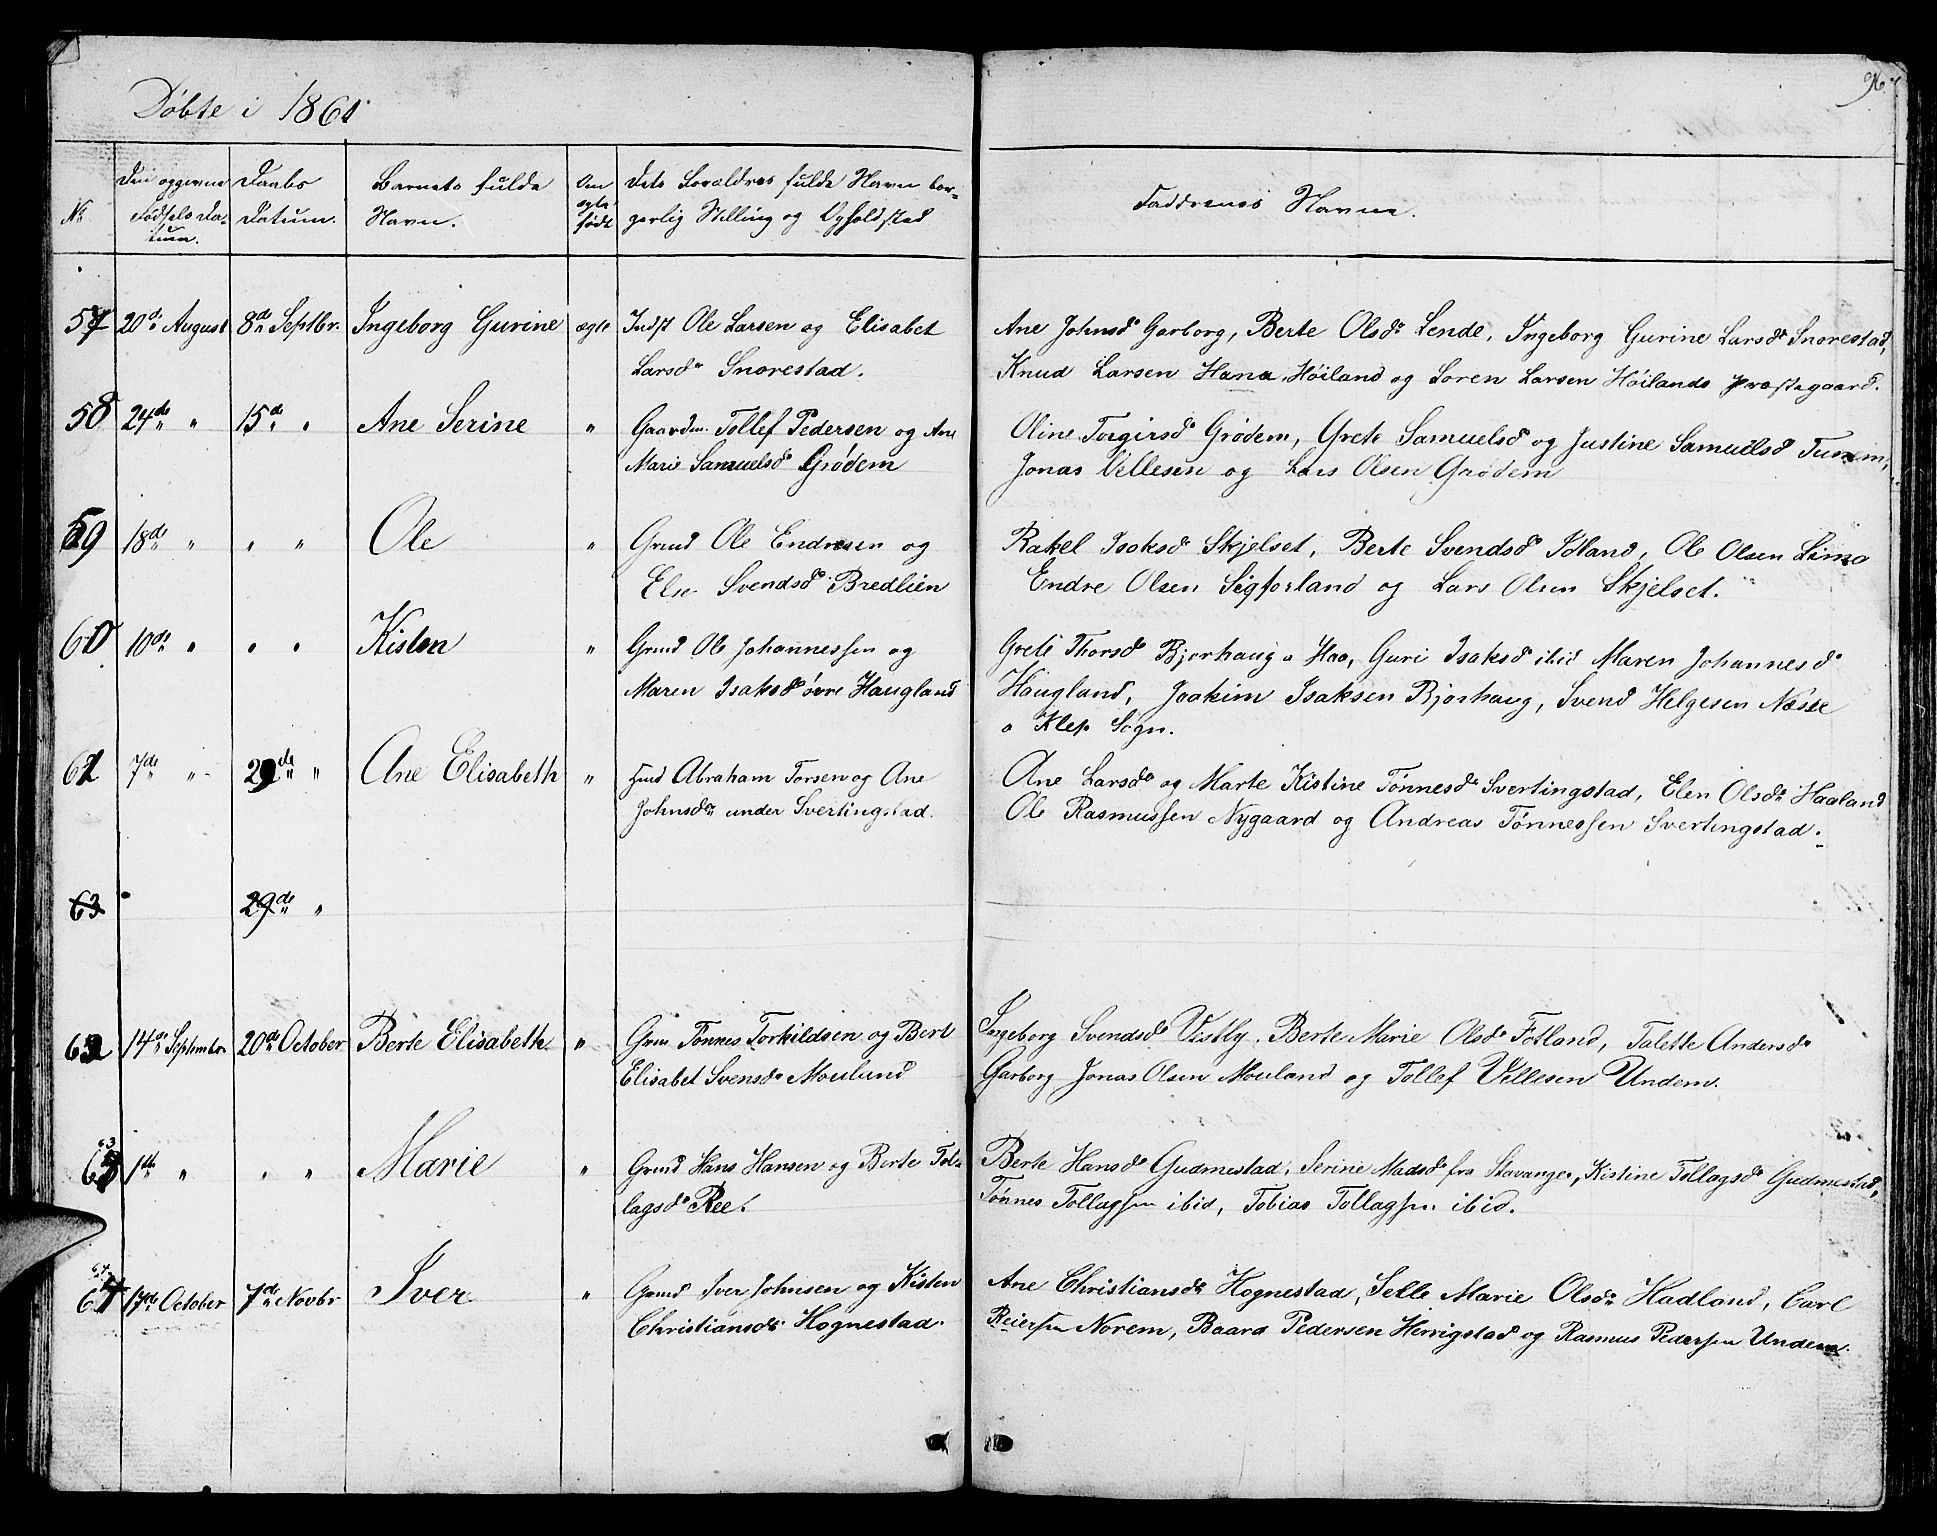 96
Døbte i 1861
No
Den opgivne Fødsels Datum.
Daabs Datum.
Barnets fulde Navn.
Om ægte født
Dets Forældres fulde Navn borgerlig Stilling og Opholdsted
Faddernes Navne.
57 20de August 8de Septbr. Ingeborg Gurine ægte Indst Ole Larsen og Elisabet
Larsdr Snorestad.
Ane Johnsd Garborg, Berte Olsdr Lende, Ingeborg Gurine Larsdr Snorestad,
Knud Larsen Hana, Høiland og Soren Larsen Høilands Præstegaard.
58 24de " 15de " Ane Serine " Gaardm. Tollef Pedersen og Ane
Marie Samuelsd Grødem
Oline Torgirsd Grødem, Grete Samuelsd og Justine Samuelsd
Jonas Vellesen og Lars Olsen Grødem
59 18de " " " Ole " Grmd Ole Endresen og
Else Svendsd Bredlien
Rakel Isaksd Skjelset, Berte Svendsd Idland, Ole Olsen Lima
Endre Olsen Sigforland og Lars Olsen Skjelset.
60 10de " " " Kisten " Grmd Ole Johannessen og
Maren Isaksd øvre Haugland
Grete Thorsd Bjorhaug a Haa, Guri Isaksd ibid Maren Johannesd
Haugland, Joakim Isaksen Bjorhaug, Svend Helgesen Næsse
a Klep Sogn.
61 7de " 29de " Ane Elisabeth " Hmd Abraham Torsen og Ane
Johnsdr under Svertingstad.
Ane Larsdr og Marte Kistine Tønnesd Svertingstad, Elen Olsdr Haaland
Ole Rasmussen Nygaard og Andreas Tønnessen Svertingstad.
63 29de "
62 14de Septembr 20de October Berte Elisabeth " Grm Tønnes Torkildsen og Bert
Elisabet Svensdr Mouland
Ingeborg Svendsd Vistly, Berte Marie Olsdr Fotland, Talette Andersdr
Garborg Jonas Olsen Mouland og Tollef Vellesen Undem.
63
63 1de " " " Marie " Grmd Hans Hansen og Berte Tol-
lagsdr Ree.
Berte Hansdr Gudmestad, Serine Madsdr fra Stavanger, Kistine Tollagsdr Gudmestad,
Tønnes Tollagsen ibid, Tobias Tollagsen ibid.
64
64 17de October 7de Novbr Iver " Grmd Iver Johnsen og Kisten
Christiansdr Hognestad.
Ane Christiansdr Hognestad, Selle Marie Olsdr Hadland, Carl
Reiersen Norem, Baard Pedersen Herrigstad og Rasmus Pedersen Undem.